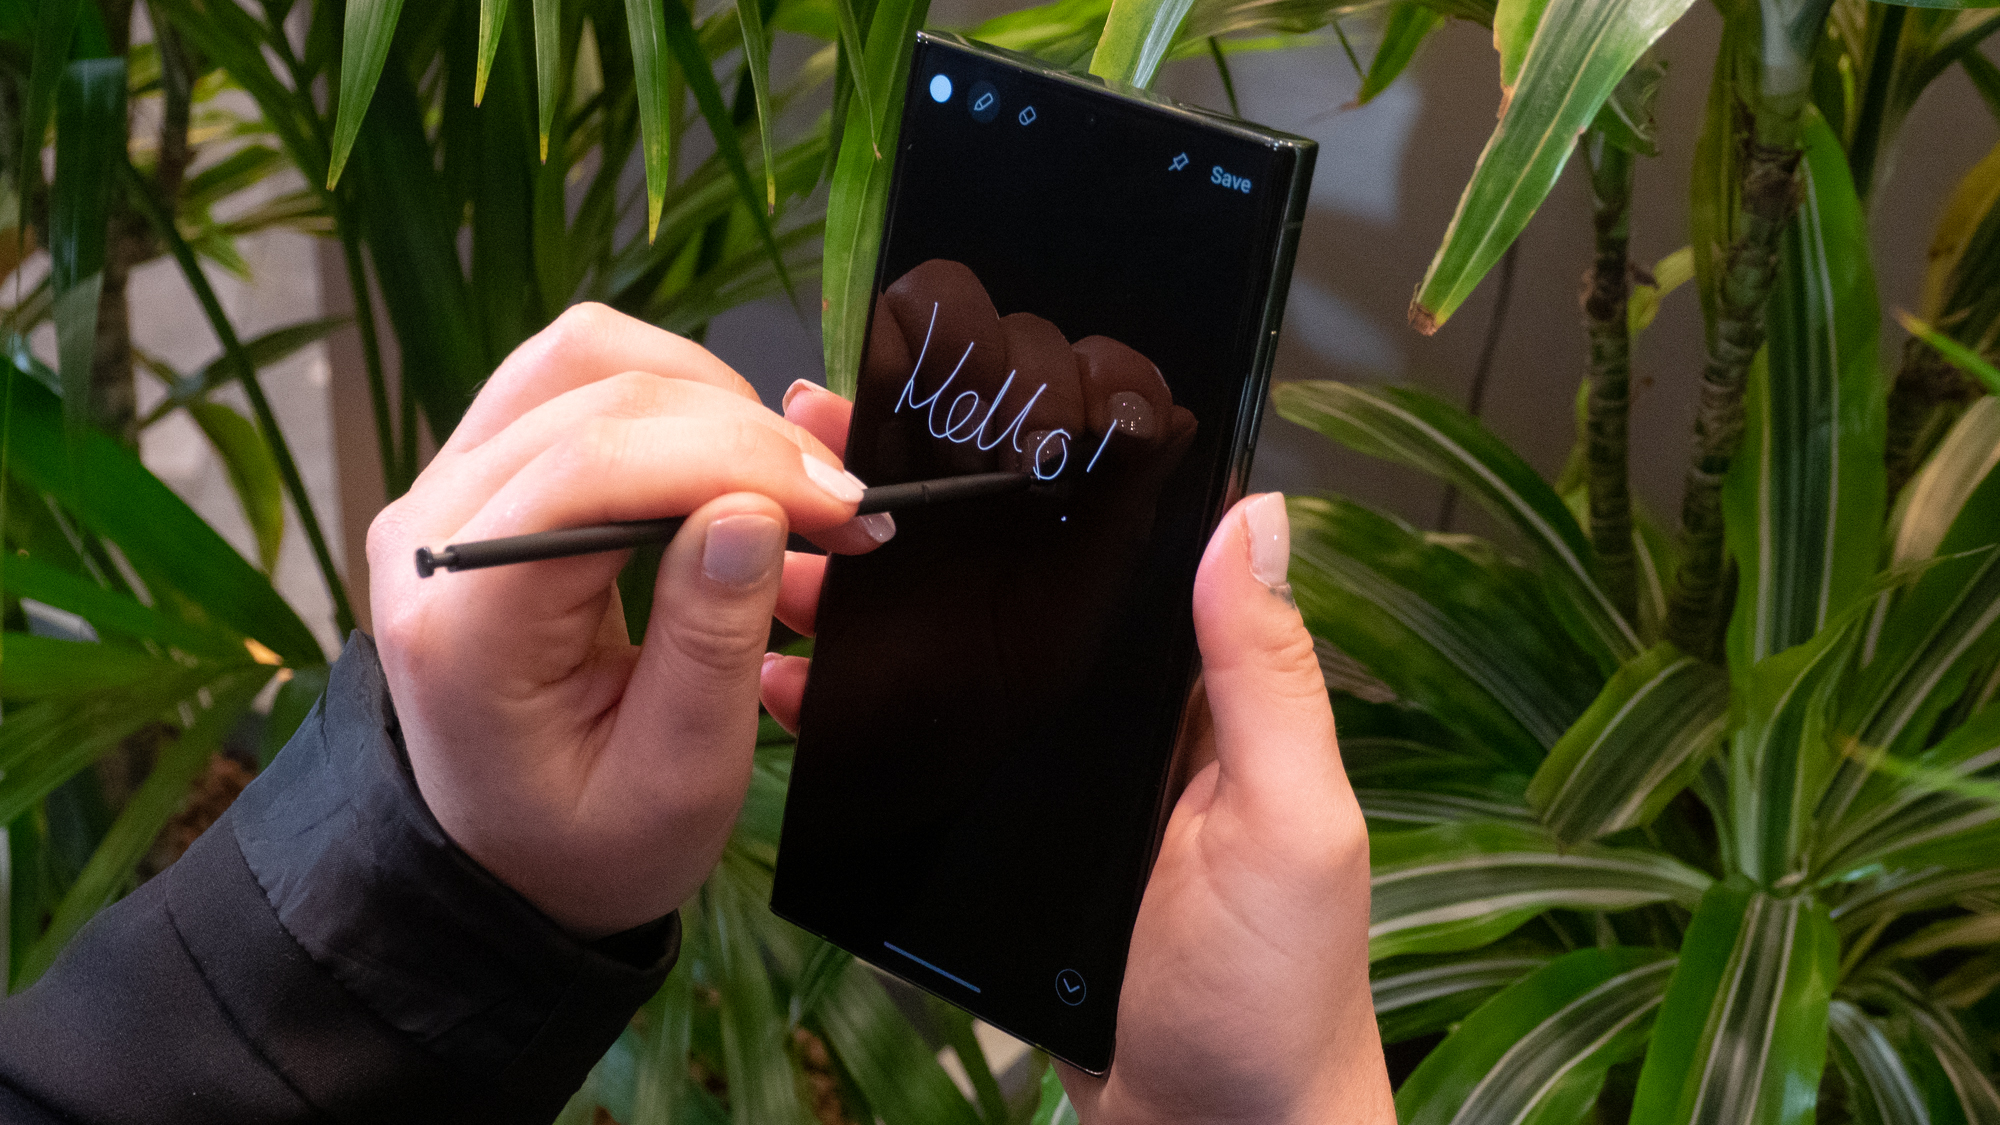 Save
Hello!